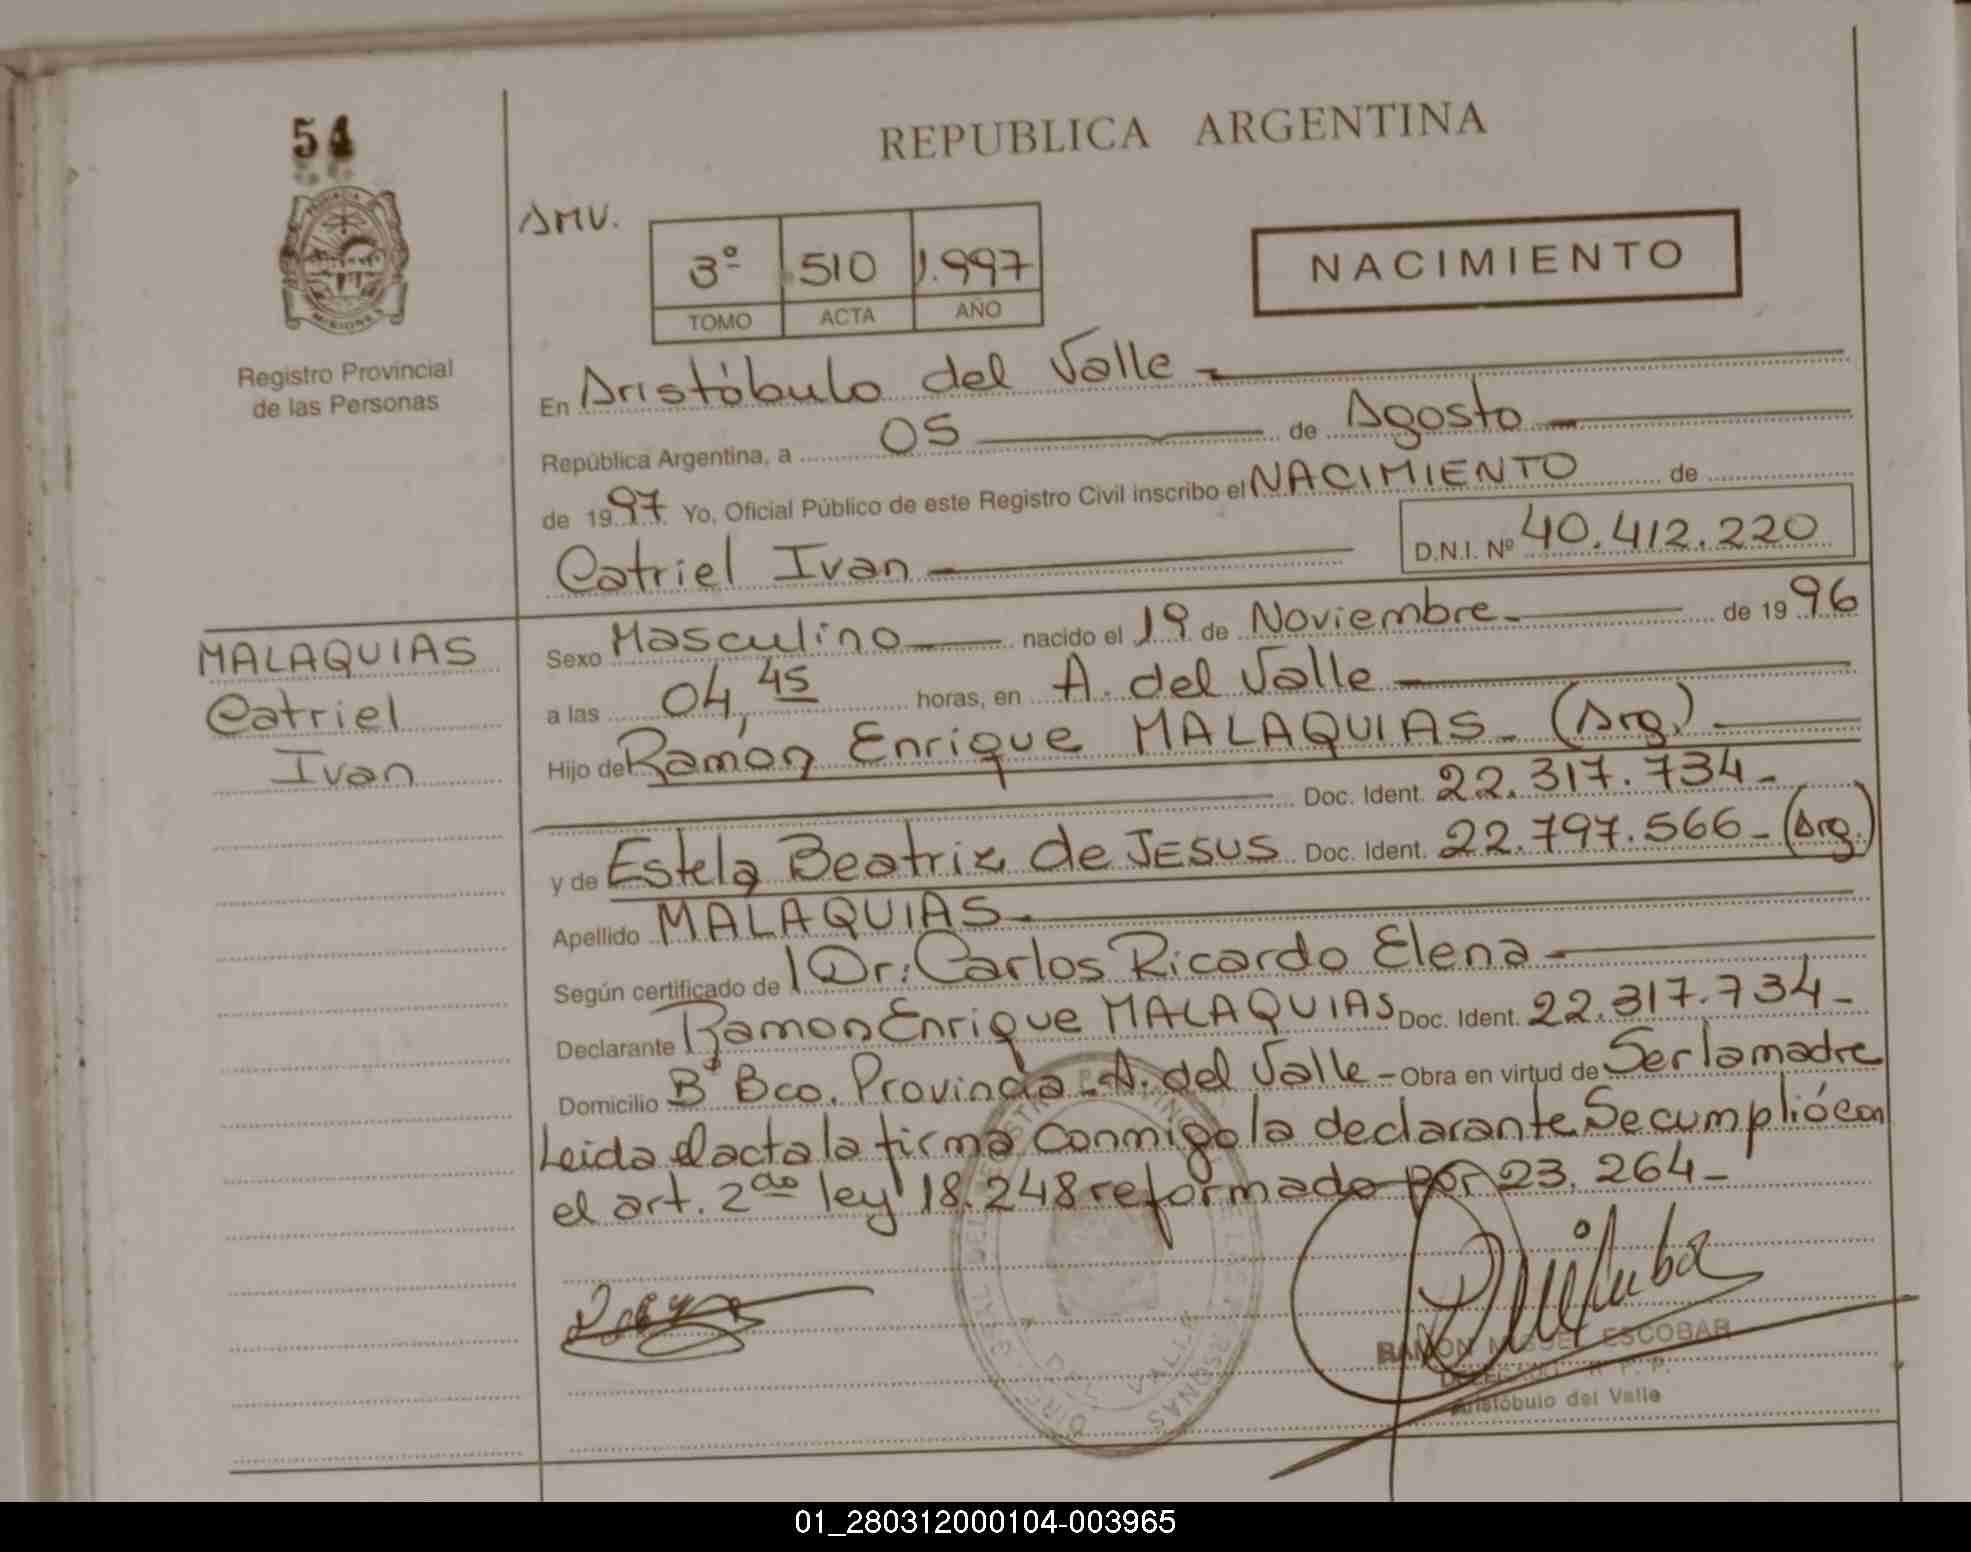 54
REPUBLICA ARGENTINA
AMV.
3º 510 1.997
TOMO ACTA AÑO
NACIMIENTO
MISIONES
Registro Provincial
de las Personas
En Aristóbulo del Valle
República Argentina, a 05 de Agosto
de 1997 Yo, Oficial Público de este Registro Civil inscribo el NACIMIENTO de
Catriel Ivan D.N.I. Nº 40.412.220
MALAQUIAS
Catriel
Ivan
Sexo Masculino nacido el 19 de Noviembre de 1996
a las 04,45 horas, en A. del Valle
Hijo de Ramón Enrique MALAQUIAS - (Arg.)
Doc. Ident. 22.317.734-
y de Estela Beatriz de JESUS Doc. Ident. 22.797.566-(Arg.)
Apellido MALAQUIAS-
Según certificado de Dr: Carlos Ricardo Elena
Declarante Ramon Enrique MALAQUIAS Doc. Ident. 22.317.734-
Domicilio Bº Bco. Provincia - A. del Valle - Obra en virtud de Ser la madre
Leida el acta la firma conmigo la declarante Se cumplió con
el art. 2do ley 18.248 reformado por 23.264-
RAMON MIGUEL ESCOBAR
DELEGADO R. P. P.
Aristóbulo del Valle
01_280312000104-003965